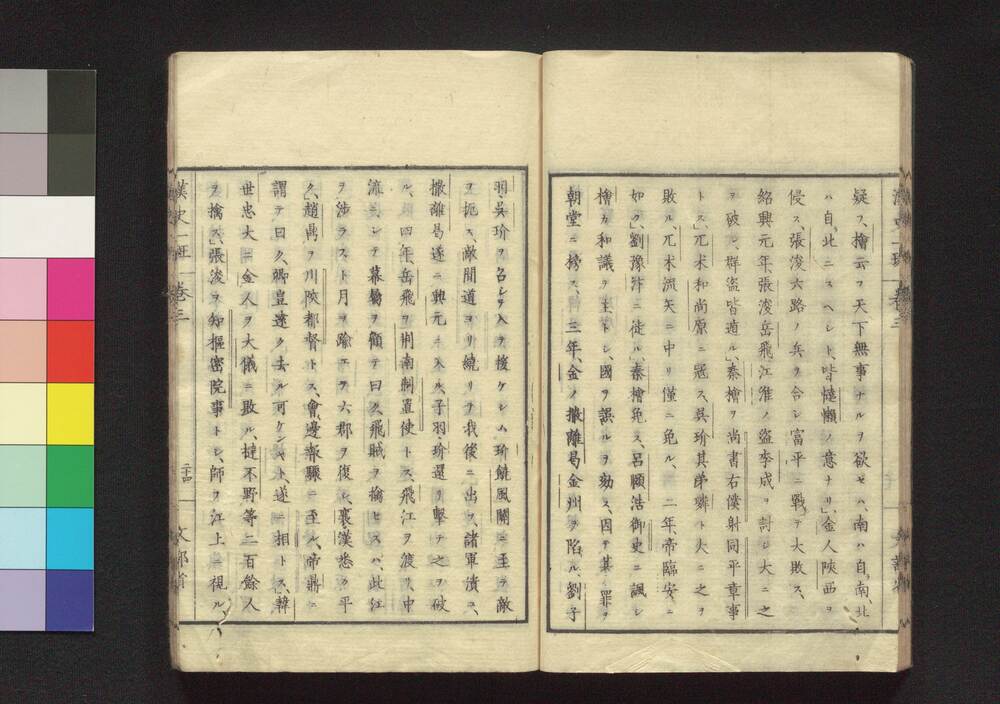 疑フ、檜云フ天下無事ナルヲ欲セハ、南ハ自南、北
ハ自北ニスヘシト、皆懥懶ノ意ナリ」金人陝西ヲ
侵ス、張浚六路ノ兵ヲ合シ富平ニ戰テ大敗ス、
紹興元年、張浚岳飛江淮ノ盜李成ヲ討シ大ニ之
ヲ破ル、群盜皆遁ル」秦檜ヲ尚書右僕射同平章事
トス」兀术和尚原ニ冦ス、呉玠其弟璘ト大ニ之ヲ
敗ル、兀术流矢ニ中リ僅ニ免ル、二年、帝臨安ニ
如ク」劉豫汴ニ徙ル」秦檜免ス、呂頤浩御史ニ諷シ
檜カ和議ヲ主トシ、國ヲ誤ルヲ劾ス、因テ其罪ヲ
朝堂ニ榜ス、三年、金ノ撒離曷金州ヲ陷ル、劉子
羽、呉玠ヲ召シテ入ヲ援ケシム玠饒風關ニ至テ敵
ヲ扼ス敵間道ヨリ繞リテ我後ニ出ツ、諸軍潰ユ、
撒離曷遂ニ興元ニ入ル、子羽、玠還リ擊テ之ヲ破
ル、四年、岳飛ヲ荆南制置使トス、飛江ヲ渡リ、中
流ニシテ幕屬ヲ顧テ曰ク、飛賊ヲ擒ヒスハ、此江
ヲ涉ラスト月ヲ踰エテ六郡ヲ復シ、襄漢悉ク平
ク、趙鼎ヲ川陝都督トス、會邊報驟ニ至ル、帝鼎ニ
謂テ曰ク、卿豈遠ク去ル可ケンヤト、遂ニ相トス、韓
世忠大ニ金人ヲ大儀ニ敗ル、撻不野等二百餘人
ヲ擒ス」張浚ヲ知樞密院事トシ、師ヲ江上ニ視ル
漢史一班 卷三
二十四
文部省